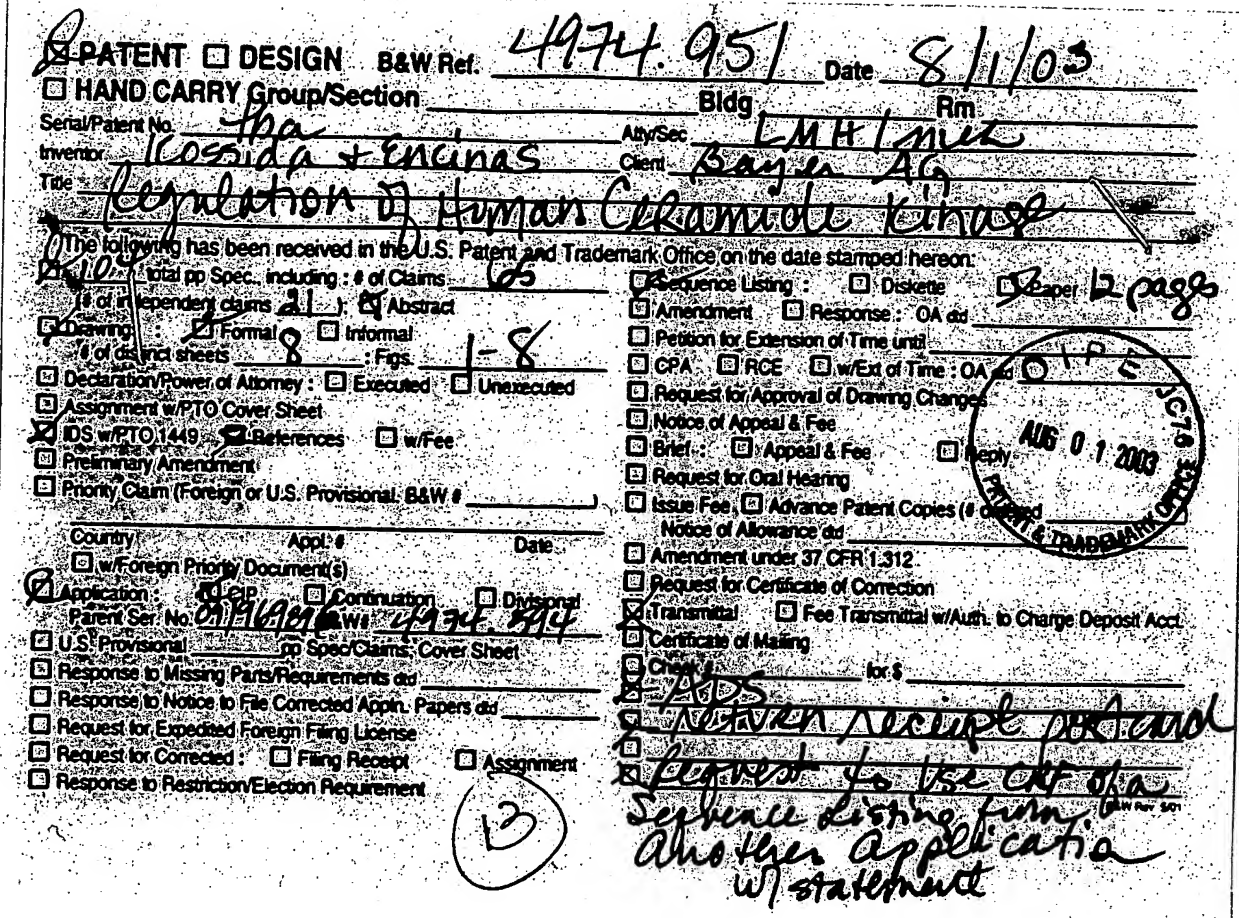 PATENT DESIGN B&W Ref. 4974.951 Date 8/1/03
HAND CARRY Group/Section Bldg Rm
Serial/Patent No. tba Atty/Sec LMH/
Inventor Kossida + Encinas Client Bayer AG
Title Regulation of Human Ceramide Kinase
The following has been received in the U.S. Patent and Trademark Office on the date stamped hereon:
total pp Spec., including : # of Claims
(# of independent claims 21 ); Abstract
Drawing: : Formal Informal
# of distinct sheets 8 : Figs. 1-8
Declaration/Power of Attorney : Executed Unexecuted
Assignment w/PTO Cover Sheet
IDS w/PTO 1449 References w/Fee
Preliminary Amendment
Priority Claim (Foreign or U.S. Provisional, B&W # )
Country Appl. # Date
w/Foreign Priority Document(s)
Application : CIP Continuation Divisional
Parent Ser. No. B&W#
U.S. Provisional pp Spec/Claims, Cover Sheet
Response to Missing Parts/Requirements dtd
Response to Notice to File Corrected Appln. Papers dtd
Request for Expedited Foreign Filing License
Request for Corrected : Filing Receipt Assignment
Response to Restriction/Election Requirement
13
Sequence Listing : Diskette Paper 12 pages
Amendment Response : OA dtd
Petition for Extension of Time until
CPA RCE w/Ext of Time : OA dtd
Request for Approval of Drawing Changes
Notice of Appeal & Fee
Brief : Appeal & Fee Reply
Request for Oral Hearing
Issue Fee Advance Patent Copies (# ordered
Notice of Allowance dtd
Amendment under 37 CFR 1.312
Request for Certificate of Correction
Transmittal Fee Transmittal w/Auth. to Charge Deposit Acct.
Certificate of Mailing
Check # for $
ADS
return receipt postcard
Request to Use CRF of a
B&W Rev 5/01
Sequence Listing from
Another Applicatio
w/ statement
OIPE JC78
AUG 01 2003
PATENT & TRADEMARK OFFICE